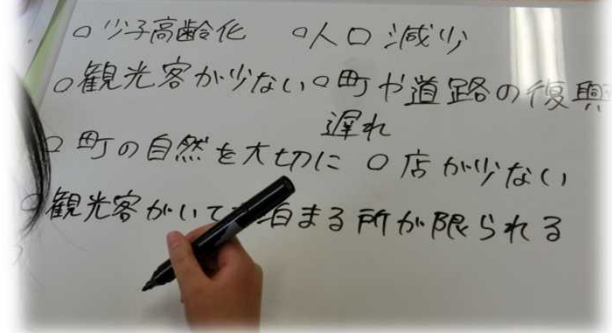 ○少子高齢化 ○人口減少
○観光客が少ない○町や道路の復興
遅れ
○町の自然を大切に ○店が少ない
○観光客がいて 泊まる所が限られる